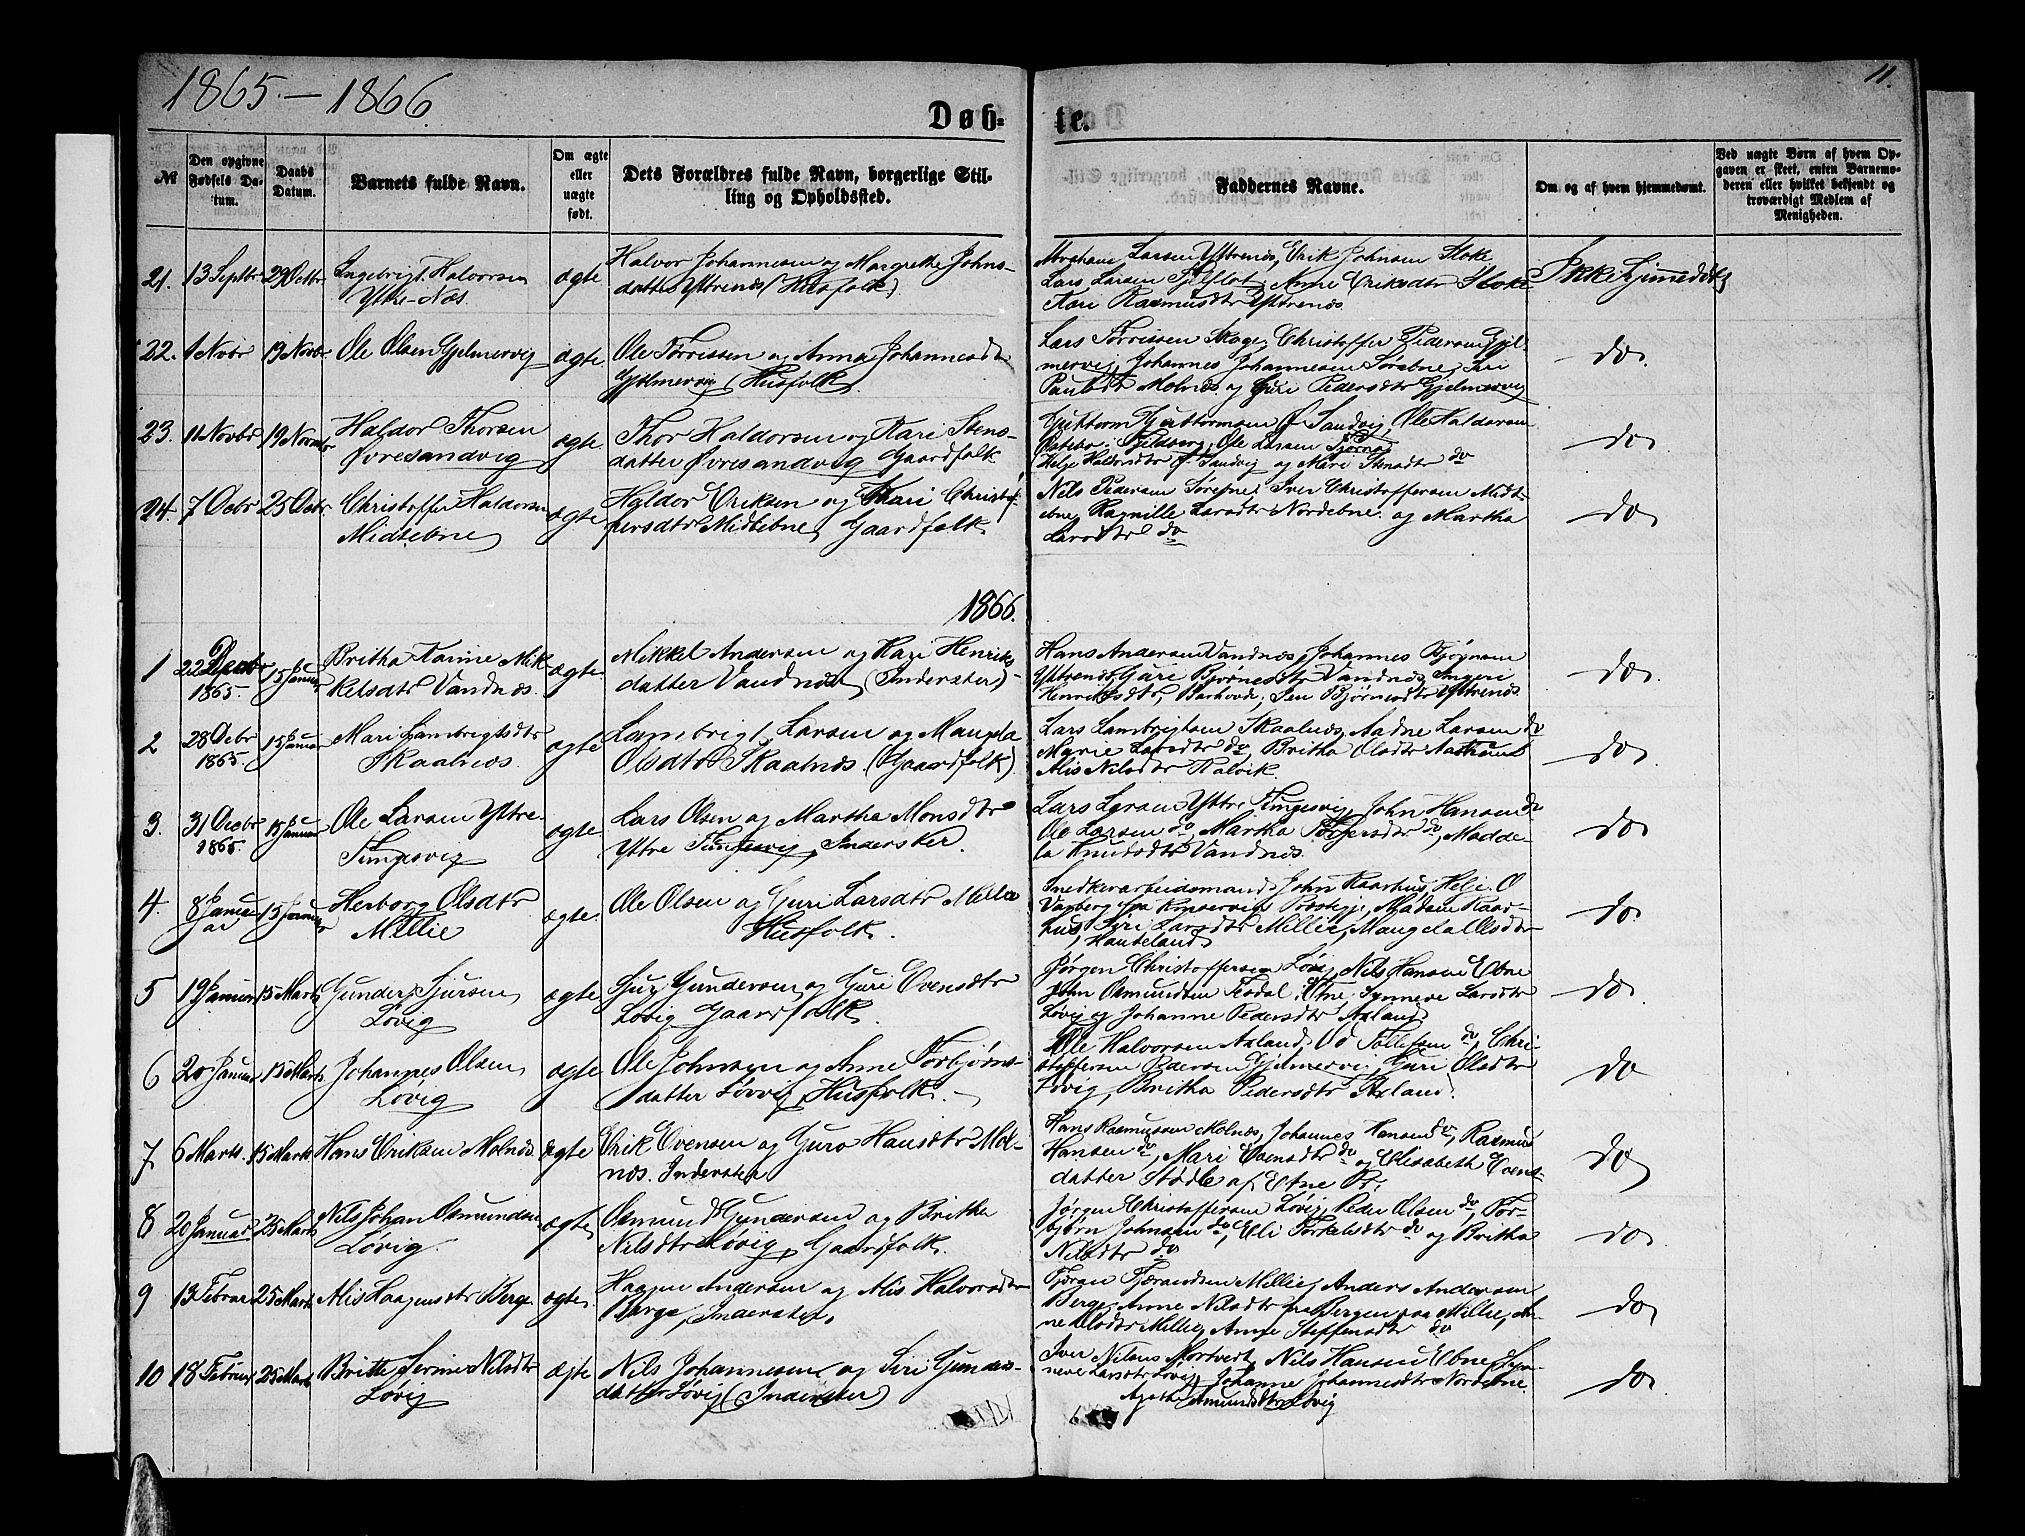 1865. – 1866.
11.
Døb-
te.
№
Den opgivne Fødsels Datum.
Daabs Datum.
Barnets fulde Navn.
Om ægte eller uægte født.
Dets Forældres fulde Navn, borgerlige Stilling og Opholdssted.
Faddernes Navne.
Om og af hvem hjemmedøbt.
Ved uægte Børn af hvem Opgaven er skeet, enten Barnemoderen eller hvilket bekjendt og troværdigt Medlem af Menigheden.
21. 13 Septbr 29 Octbr Ingebrigt Halvorsen ægte Halvor Johannesen og Margrethe Johns-
Ytre-Næs. datter Yttrenæs (Husfolk)
Abraham Larsen Yttrenæs, Erik Johnsen
Lars Larsen Anne Eriksdtr
Kari Rasmusdtr Yttrenæs.
Ikke hjemmedøbt
22. 1 Novbr 19 Novbr Ole Olsen Gjelmervig ægte Ole Torrissen og Anna Johannesdtr
Gjelmervig Husfolk
Lars Torrissen Skoge, Christoffer Pedersen Gjel-
mervig, Johannes Johannesen Sørebne,
Paulsdtr Molnæs og Guri Pedersdtr Gjelmervig
do.
23. 11 Novbr 19 Novembr Haldor Thorsen ægte Thor Haldorsen og Kari Stens-
Øvresandvig datter Øvresandvig Gaardfolk
Guttorm Guttormsen Ø. Sandvig, Ole Haldorsen
Feldberg, Ole Larsen
Helje Haldorsdtr Ø. Sandvig og Mari Stensdtr do
do
24. 7 Decbr 25 Decbr Christoffer Haldorsen ægte Haldor Eriksen og Kari Christof-
Midtebne fersdtr Midtebne, Gaardfolk.
Nils Pedersen Sørebne, Iver Christoffersen Midt-
ebne, Ragnille Larsdtr Nordebne. og Martha
Larsdtr do
do
1866.
1 22 Decbr 15 Januar Britha Karine Mik- ægte Mikkel Andersen og Kari Henriks
1865. kelsdtr Vandnæs. datter Vandnæs (Inderster)
Hans Andersen Vandnæs, Johannes Bjørnsen
Yttrenæs, Guri Bjørnsdtr Vandnæs, Ingeri
Henriksdtr, Bjørnsdtr Yttrenæs.
do.
2 28 Decbr 15 Januar Mari Lambrigtsdtr ægte Lambrigt Larsen og Maugela
1865. Skaalnæs. Olsdtr Skaalnæs (Gaardfolk)
Lars Lambrigtsen Skaalnæs, Aadne Larsen do
Marie Larsdtr do, Britha Olsdtr
Alis Nilsdtr Kalvik.
do.
3. 31 Decbr 15 Januar Ole Larsen Yttre- ægte Lars Olsen og Martha Monsdtr
1865. Tungesvig Yttre Tungesvig, Inderster.
Lars Larsen Yttre Tungesvig, John Hansen do
Ole Larsen do, Martha do, Madde-
la Knudsdtr Vandnæs.
do
4. 8 Januar 15 Januar Herborg Olsdtr ægte Ole Olsen og Guri Larsdtr Millie
Millie Husfolk.
Snedkerarbeidsmand John Raarhus, Helje O
Madam Raar-
hus, Siri Larsdtr Millie, Maugela Olsdtr
do
5 19 Januar 15 Marts Gunder Sjursen ægte Sjur Gundersen og Guri Evensdtr
Løvig Løvig Gaardfolk.
Jørgen Christoffersen Løvig, Nils Hansen Ebne
John Osmundsen Etne. Synneve Larsdtr
Løvig og Johanne Pedersdtr Axland
do.
6 20 Januar 15 Marts Johannes Olsen ægte Ole Johnsen og Anne Torbjørns-
Løvig datter Løvig Husfolk.
Ole Halvorsen Axland, do, Chri-
stoffersen Pedersen Gjelmervig, Guri Olsdtr
Løvig, Britha Pedersdtr Axland.
do
7 6 Marts. 15 Marts Hans Eriksen Molnæs ægte Erik Evensen og Guro Hansdtr Mol-
næs. Inderster
Hans Rasmussen Molnæs, Johannes Hansen do, Rasmus
Hansen do, Mari Evensdtr do og Elisabeth Evens-
datter Stødle af Etne Pr:
do
8 20 Januar 25 Marts Nils Johan Osmundsen ægte Osmund Gundersen og Britha
Løvig. Nilsdtr Løvig, Gaardfolk.
Jørgen Christoffersen Løvig, Peder Olsen do, Tor-
bjørn Johnsen do, Eli Torkelsdtr do og Britha
Nilsdtr do
do.
9 13 Februar 25 Marts Alis Haagensdtr Berge ægte Haagen Andersen og Alis Halvorsdtr
Berge, Inderster,
Millie, Anders Andersen
Berge, Anne Nilsdtr fra Bergen paa Millie, An-
ne Olsdtr Millie, Anne Steffensdtr do
do
10 18 Februar 25 Marts Britte Serine Nilsdtr ægte Nils Johannesen og Siri Gunders-
Løvig datter Løvig (Inderster)
Iver Nilsen Mortvedt, Nils Hansen Ebne, Syn-
neve Larsdtr Løvig, Johanne Johannesdtr Nordebne
Agathe Osmundsdtr Løvig
do